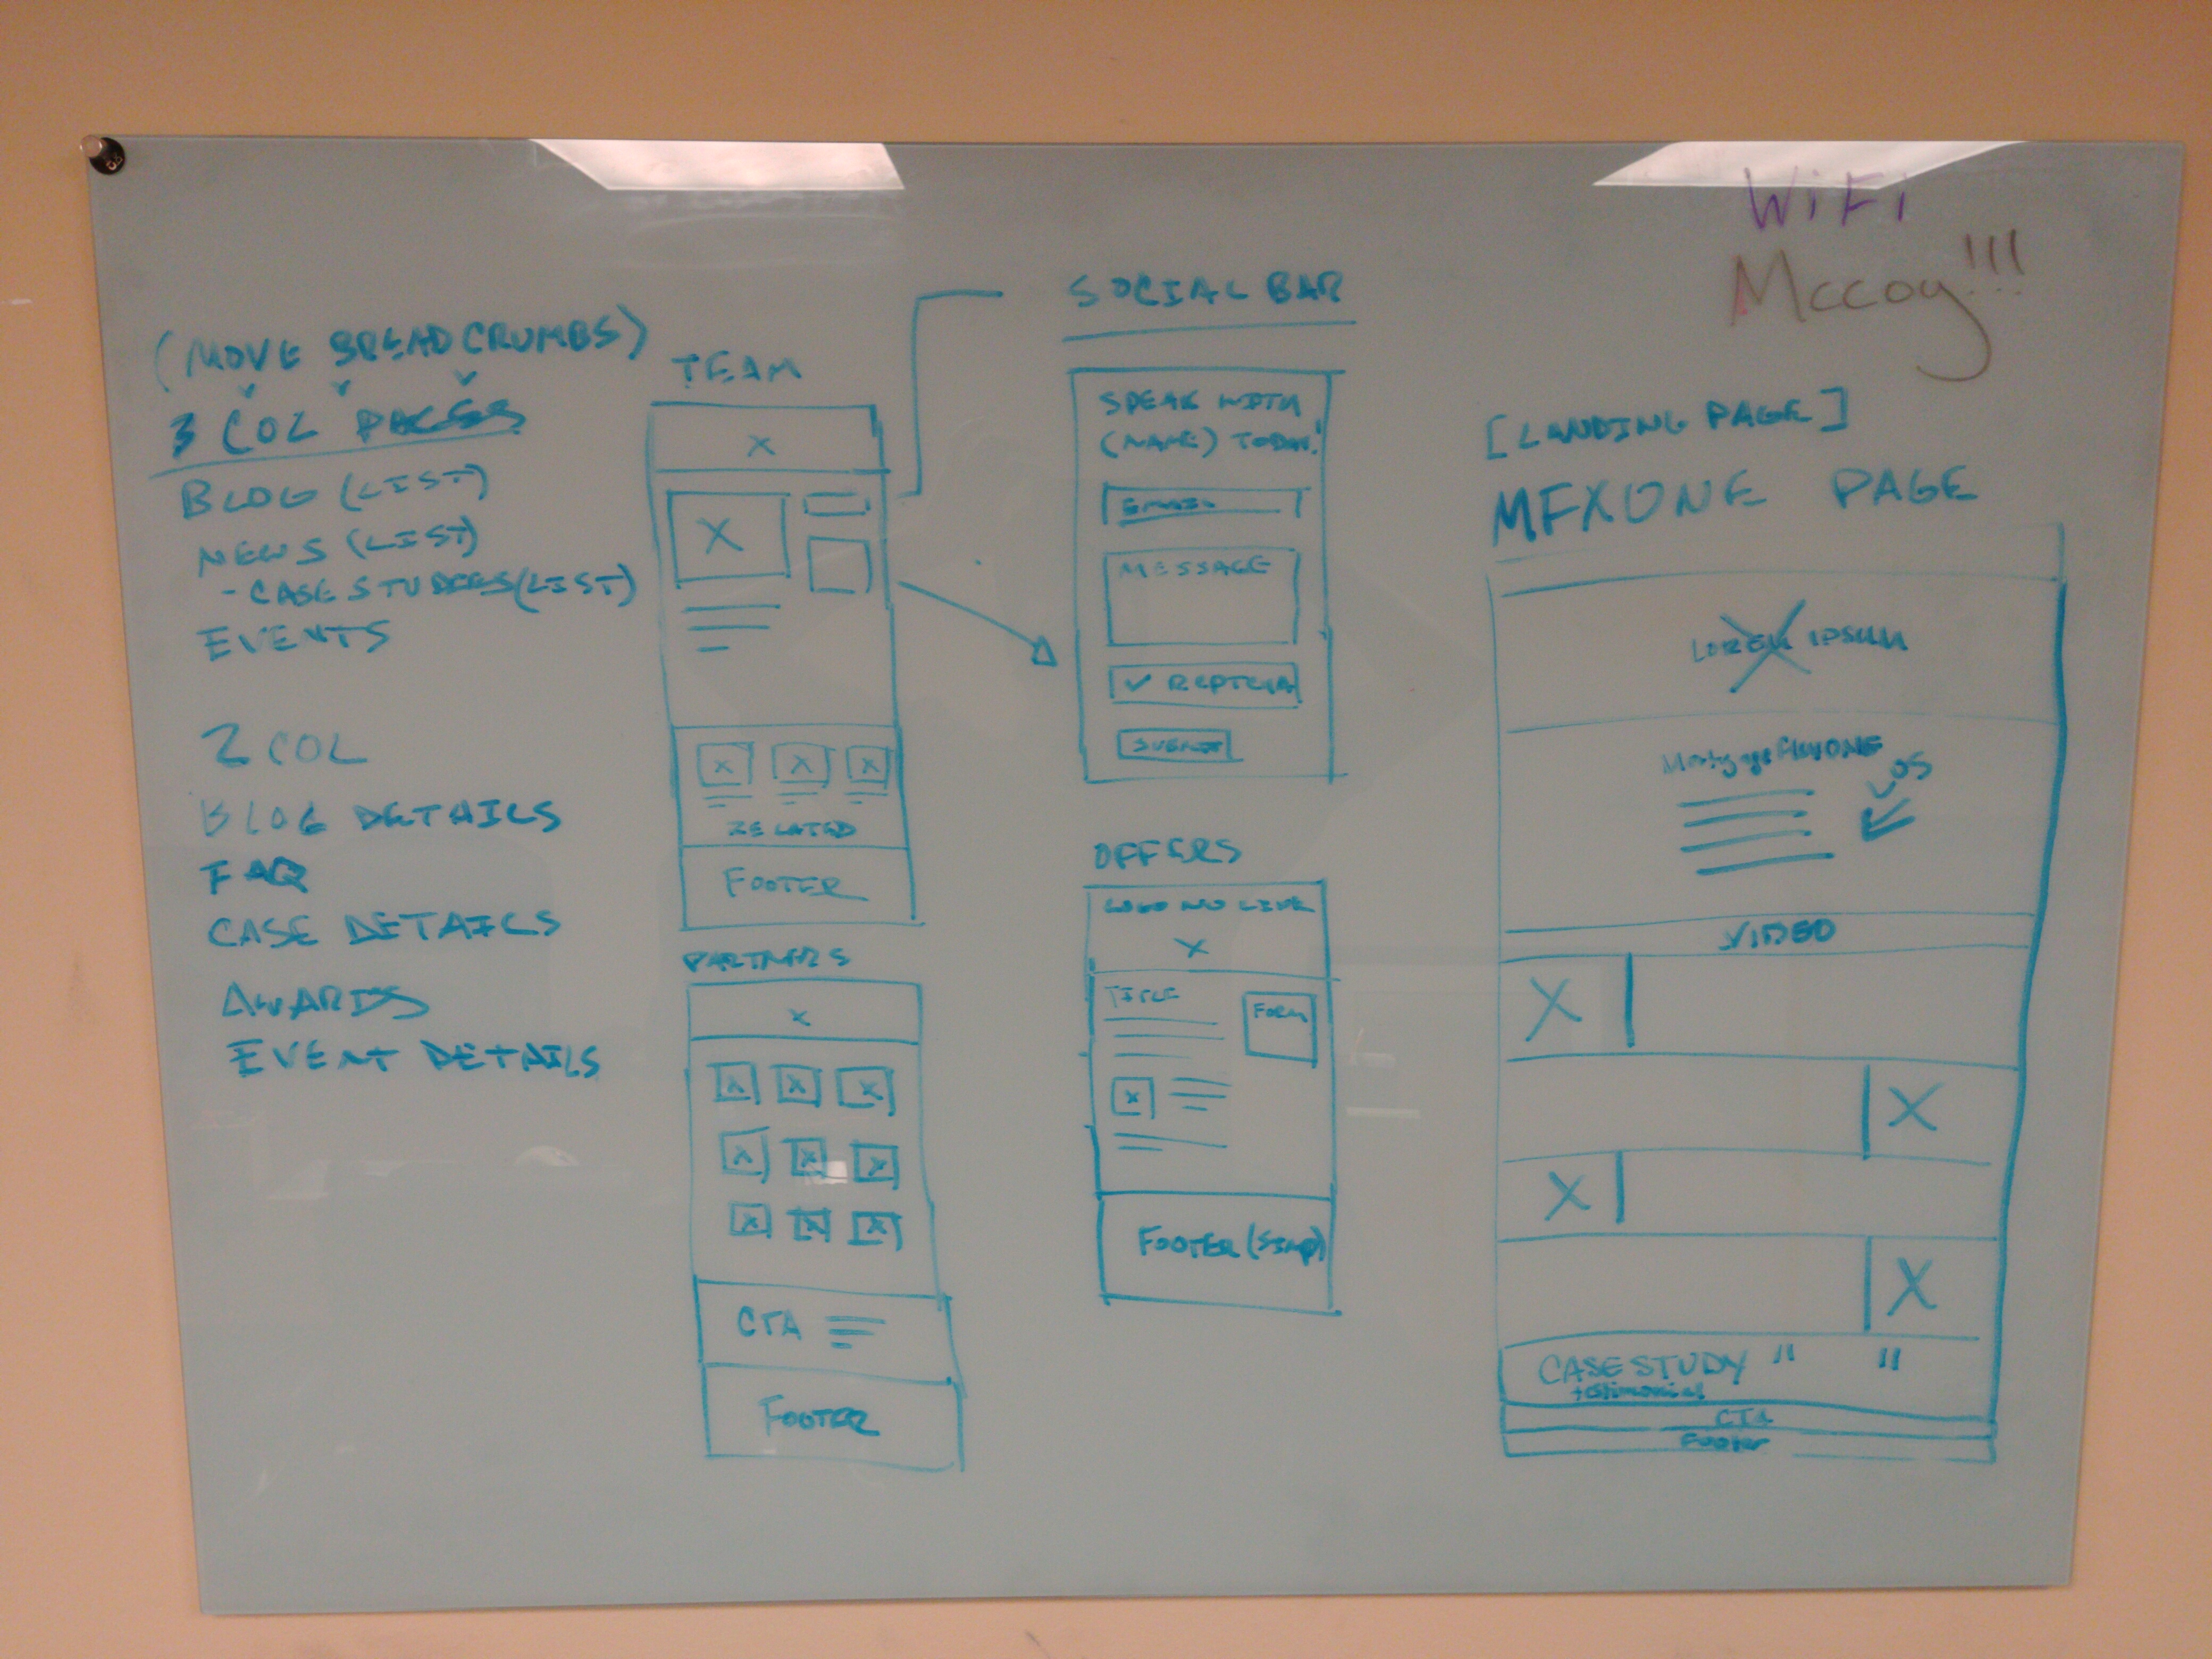 WiFi
Mccoy!!!
(MOVE BREADCRUMBS)
3 COL PAGES
BLOG (LIST)
NEWS (LIST)
- CASE STUDIES (LIST)
EVENTS
2 COL
BLOG DETAILS
FAQ
CASE DETAILS
AWARDS
EVENT DETAILS
TEAM
X
X
X X X
RELATED
FOOTER
PARTNERS
X
X X X
X X X
X X X
CTA
FOOTER
SOCIAL BAR
SPEAK WITH
(NAME) TODAY!
EMAIL
MESSAGE
✓ REPTCHA
SUBMIT
OFFERS
LOGO NO LINK
X
TITLE
FORM
X
FOOTER (SIMP)
[LANDING PAGE]
MFXONE PAGE
LOREM IPSUM
X
Mortgage ONE
LOS
VIDEO
X
X
X
X
CASE STUDY " "
testimonial
CTA
Footer